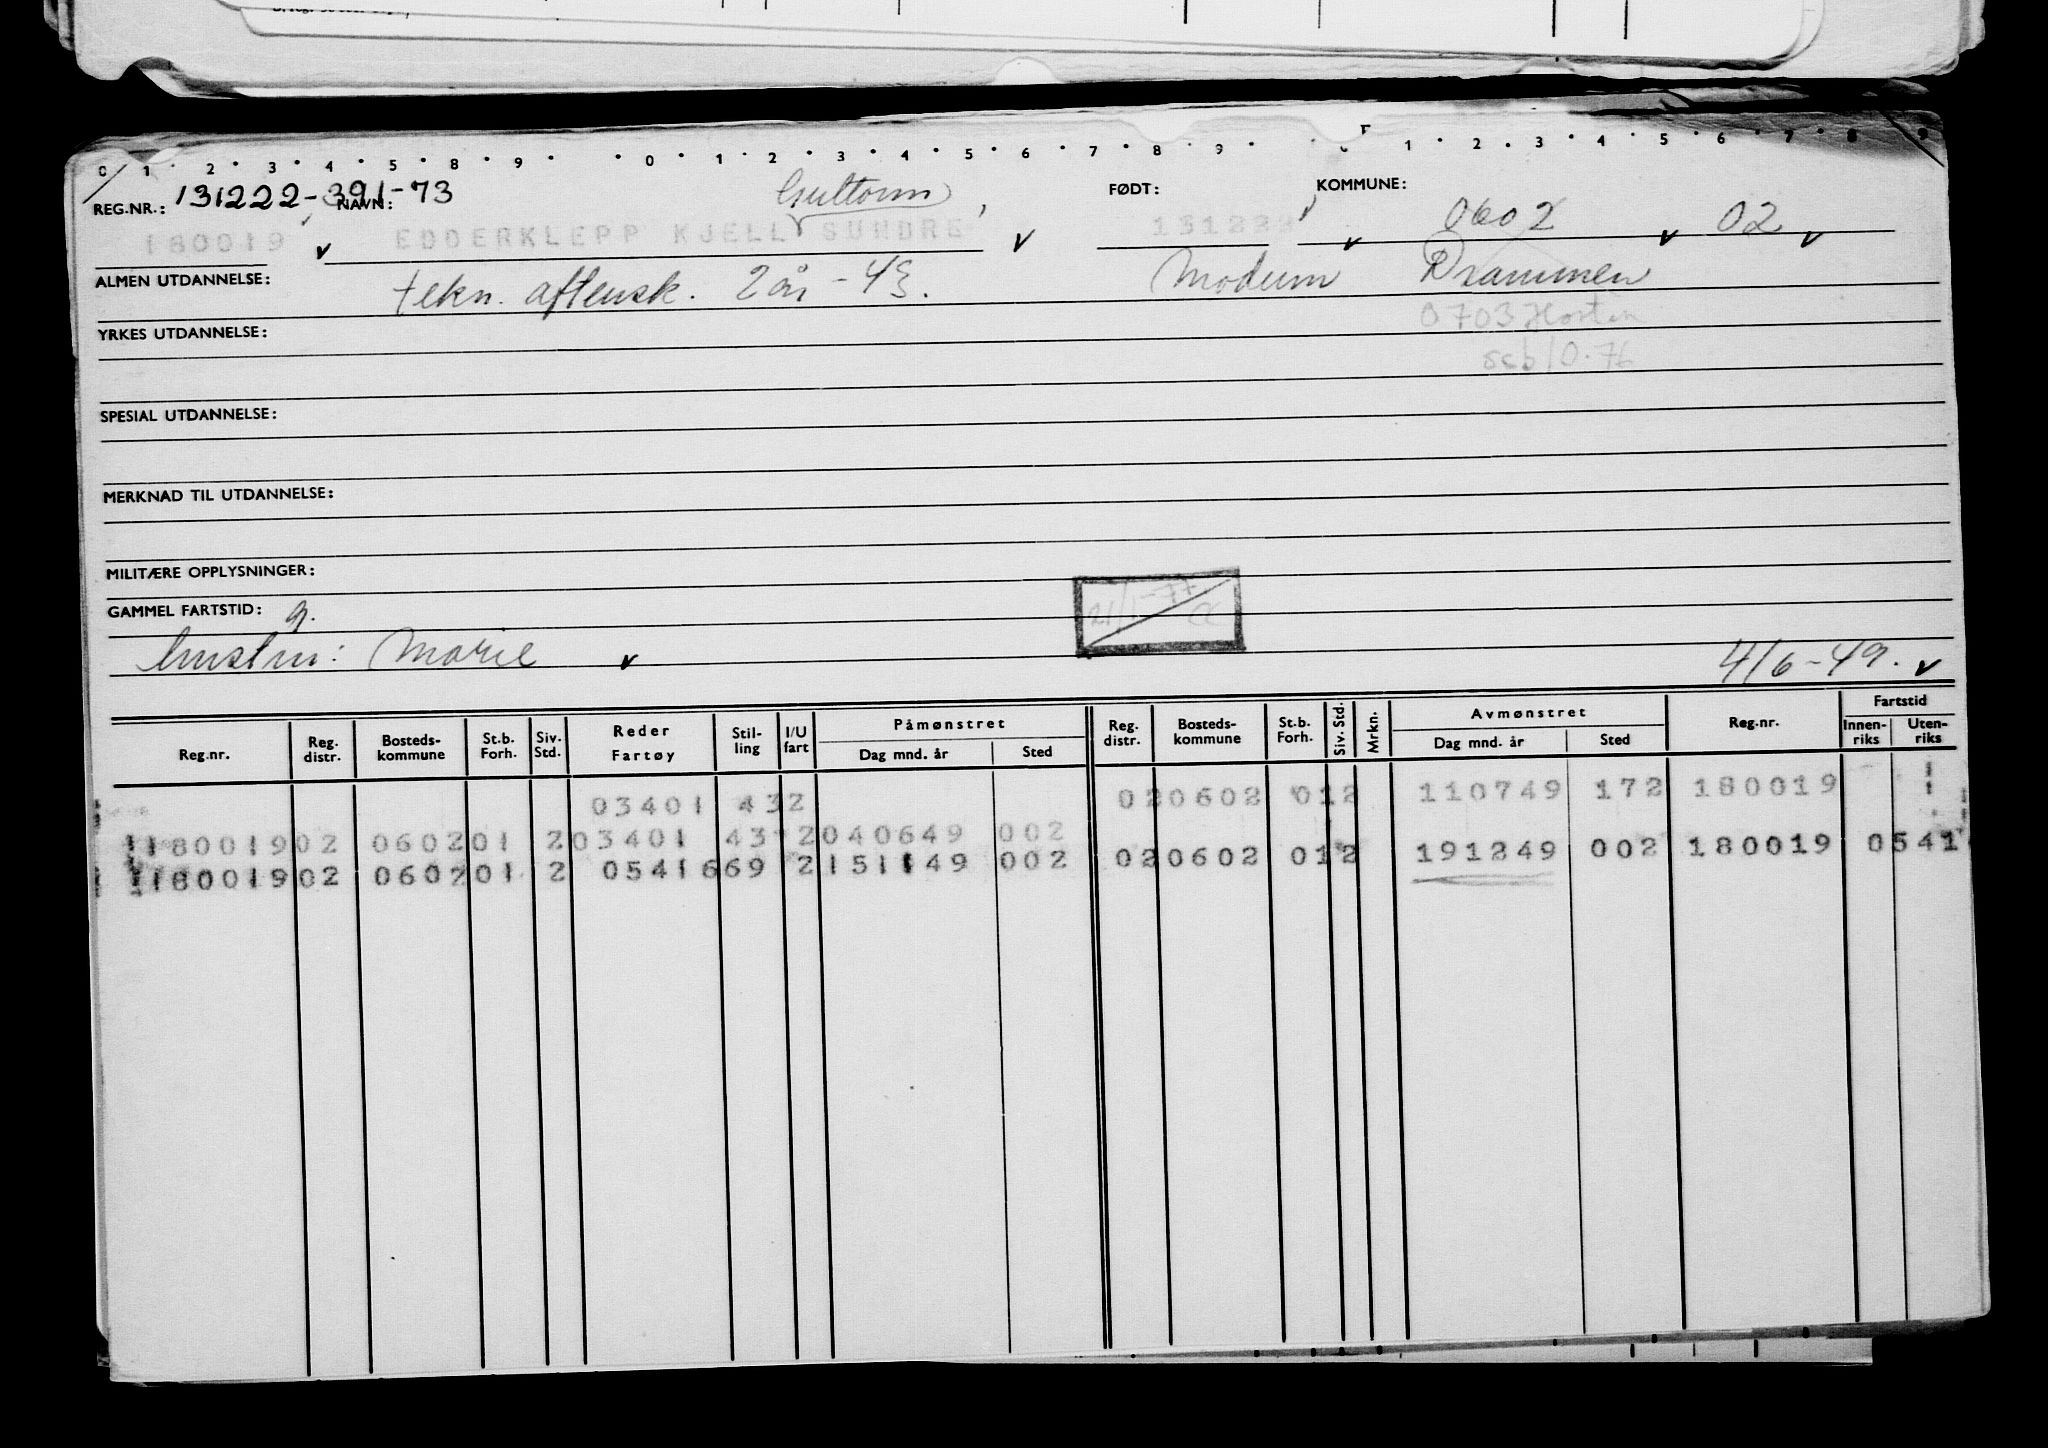 0 1 2 3 4 5 8 9 0 1 2 3 4 5 6 7 8 9 1 2 3 4 5 6 7 8 9
REG.NR.: 131222-391-73 NAVN: Guttorm, FØDT: KOMMUNE:
180019 EDDERKLEPP KJELL SUNDRE 131222 0602 02
ALMEN UTDANNELSE: tekn. aftensk. 2 år - 43. Modum Drammen
YRKES UTDANNELSE: 0703 Horten
scb 10.76
SPESIAL UTDANNELSE:
MERKNAD TIL UTDANNELSE:
MILITÆRE OPPLYSNINGER:
GAMMEL FARTSTID: g. 21/1-77
hustru: Marie 4/6-49.
Reg.nr. Reg. distr. Bosteds-kommune St.b. Forh. Siv. Std. Reder Fartøy Stil-ling I/U fart Påmønstret Dag mnd. år Sted Reg. distr. Bosteds-kommune St.b. Forh. Siv. Std. Mrkn. Avmønstret Dag mnd. år Sted Reg.nr. Fartstid Innen-riks Uten-riks
03401 432 020602 012 110749 172 180019
18001902 060201 203401 43 2040649 002
18001902 060201 2 0541669 2151149 002 020602 012 191249 002 180019 0541